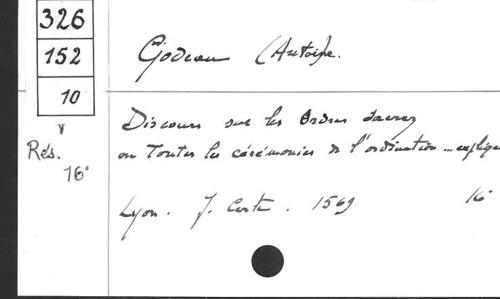 326
152
10
Rés.
16°
Godeau (Antoine.
Discours sur les Ordres Sacrez
ou Toutes les cérémonies de l'ordination ... expliqu
Lyon. J. Certe. 1569 16°